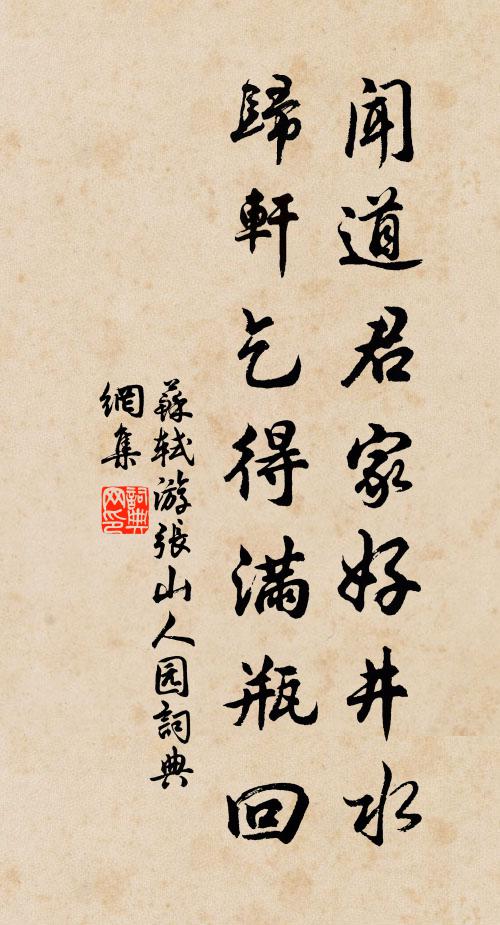 聞道君家好井水
歸軒乞得滿瓶回
蘇軾游張山人园詞典
網集
詞典
网印